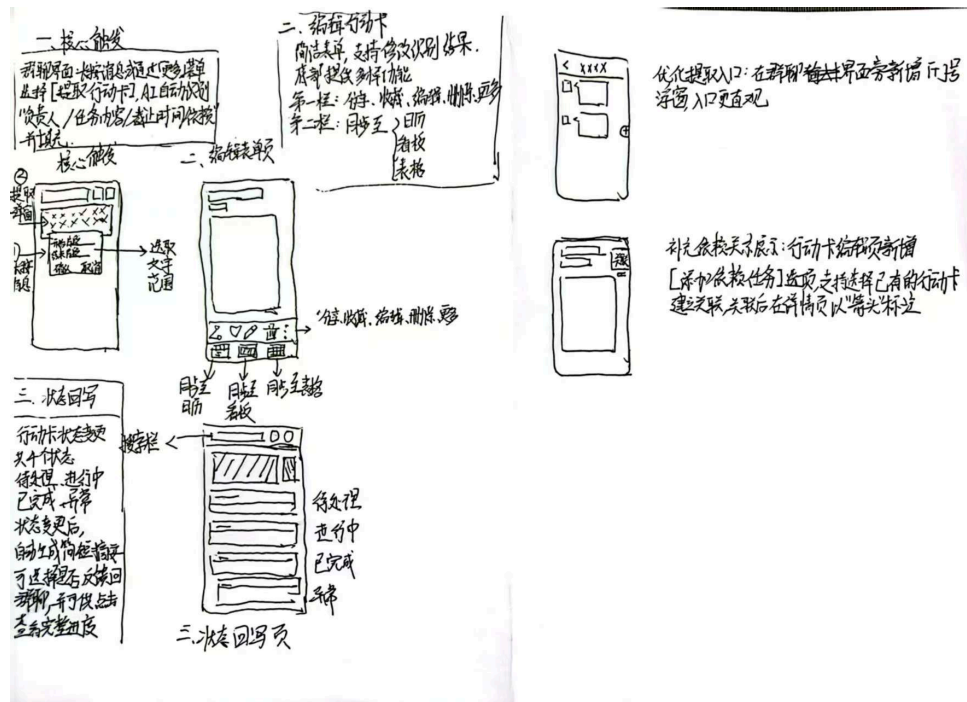 一、核心触发
群聊界面长按消息或通过"更多"菜单
选择[提取行动卡],AI自动识别
"负责人/任务内容/截止时间/依赖"
并填充
核心触发
二、编辑行动卡
简洁表单,支持修改识别结果.
底部提供多样功能
第一栏:分享、收藏、编辑、删除、更多
第二栏:同步至
日历
看板
表格
二、编辑表单页
②
提取
弹窗
选取
文字
范围
分享、收藏、编辑、删除、更多
同步至
日历
同步至
看板
同步至表格
三、状态回写
行动卡状态变更
共4个状态
待处理、进行中
已完成、异常
状态变更后,
自动生成简短摘要
可选择是否反馈回
群聊,并可供点击
查看完整进度
搜索栏
待处理
进行中
已完成
异常
三、状态回写页
< XXXX
优化提取入口:在群聊界面旁新增
浮窗,入口更直观
补充依赖关系展示:行动卡编辑页新增
[添加依赖任务]选项,支持选择已有的行动卡
建立关联,关联后在详情页以"箭头"标注